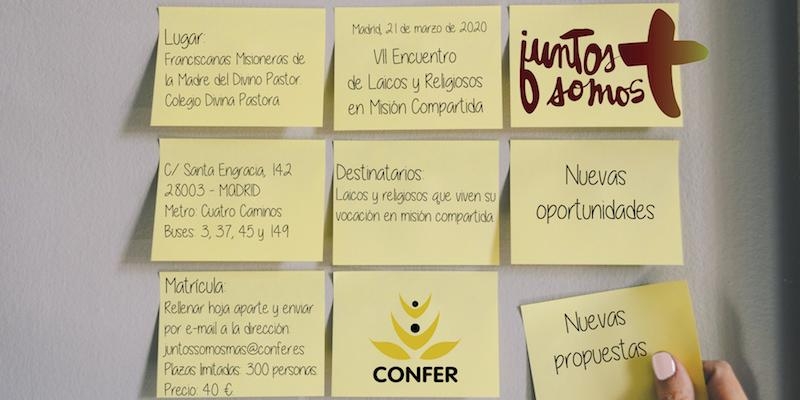 Lugar:
Franciscanas Misioneras de
la Madre del Divino Pastor.
Colegio Divina Pastora
Madrid, 21 de marzo de 2020
VII Encuentro
de Laicos y Religiosos
en Misión Compartida
juntos
somos
+
C/ Santa Engracia, 142
28003 - MADRID
Metro: Cuatro Caminos
Buses: 3, 37, 45 y 149
Destinatarios:
Laicos y religiosos que viven su
vocación en misión compartida.
Nuevas
oportunidades
Matrícula:
Rellenar hoja aparte y enviar
por e-mail a la dirección:
juntossomosmas@confer.es
Plazas limitadas: 300 personas.
Precio: 40 €.
CONFER
Nuevas
propuestas